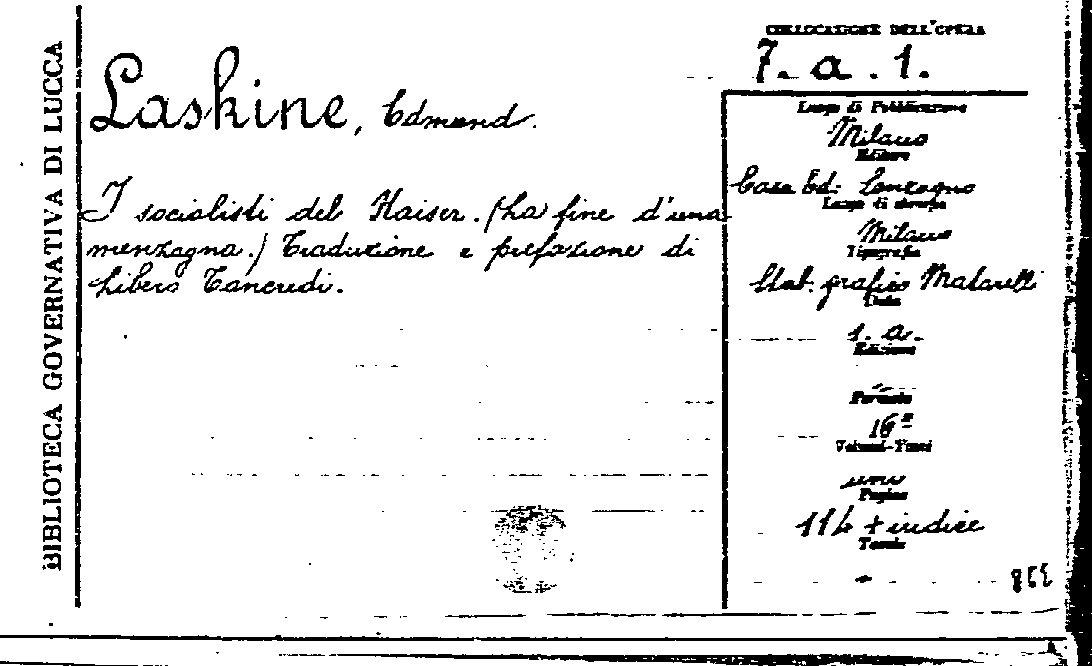 BIBLIOTECA GOVERNATIVA DI LUCCA
COLLOCAZIONE DELL'OPERA
7. a. 1.
Laskine, Edmond.
I socialisti del Kaiser. (La fine d'una
menzogna.) Traduzione e prefazione di
Libero Tancredi.
Luogo di Pubblicazione
Milano
Editore
Casa Ed. Sonzogno
Luogo di stampa
Milano
Tipografia
Stab. grafico Matarelli
Data
s. a.
Edizione
Formato
16º
Volumi-Tomi
uno
Pagine
114 + indice
Tavole
-